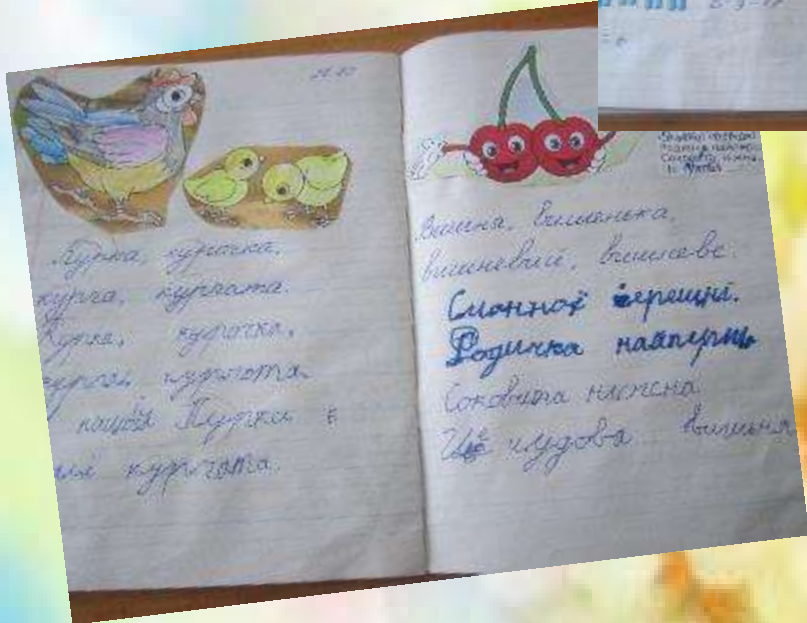 Курка, курочка,
курча, курчата.
Курка, курочка,
курча, курчата.
нашої Курки є
малі курчата.
Вишня, вишенька,
вишневий, вишневе.
Смачної черешні.
Родичка найперша
Соковита ніжна
Це чудова вишня